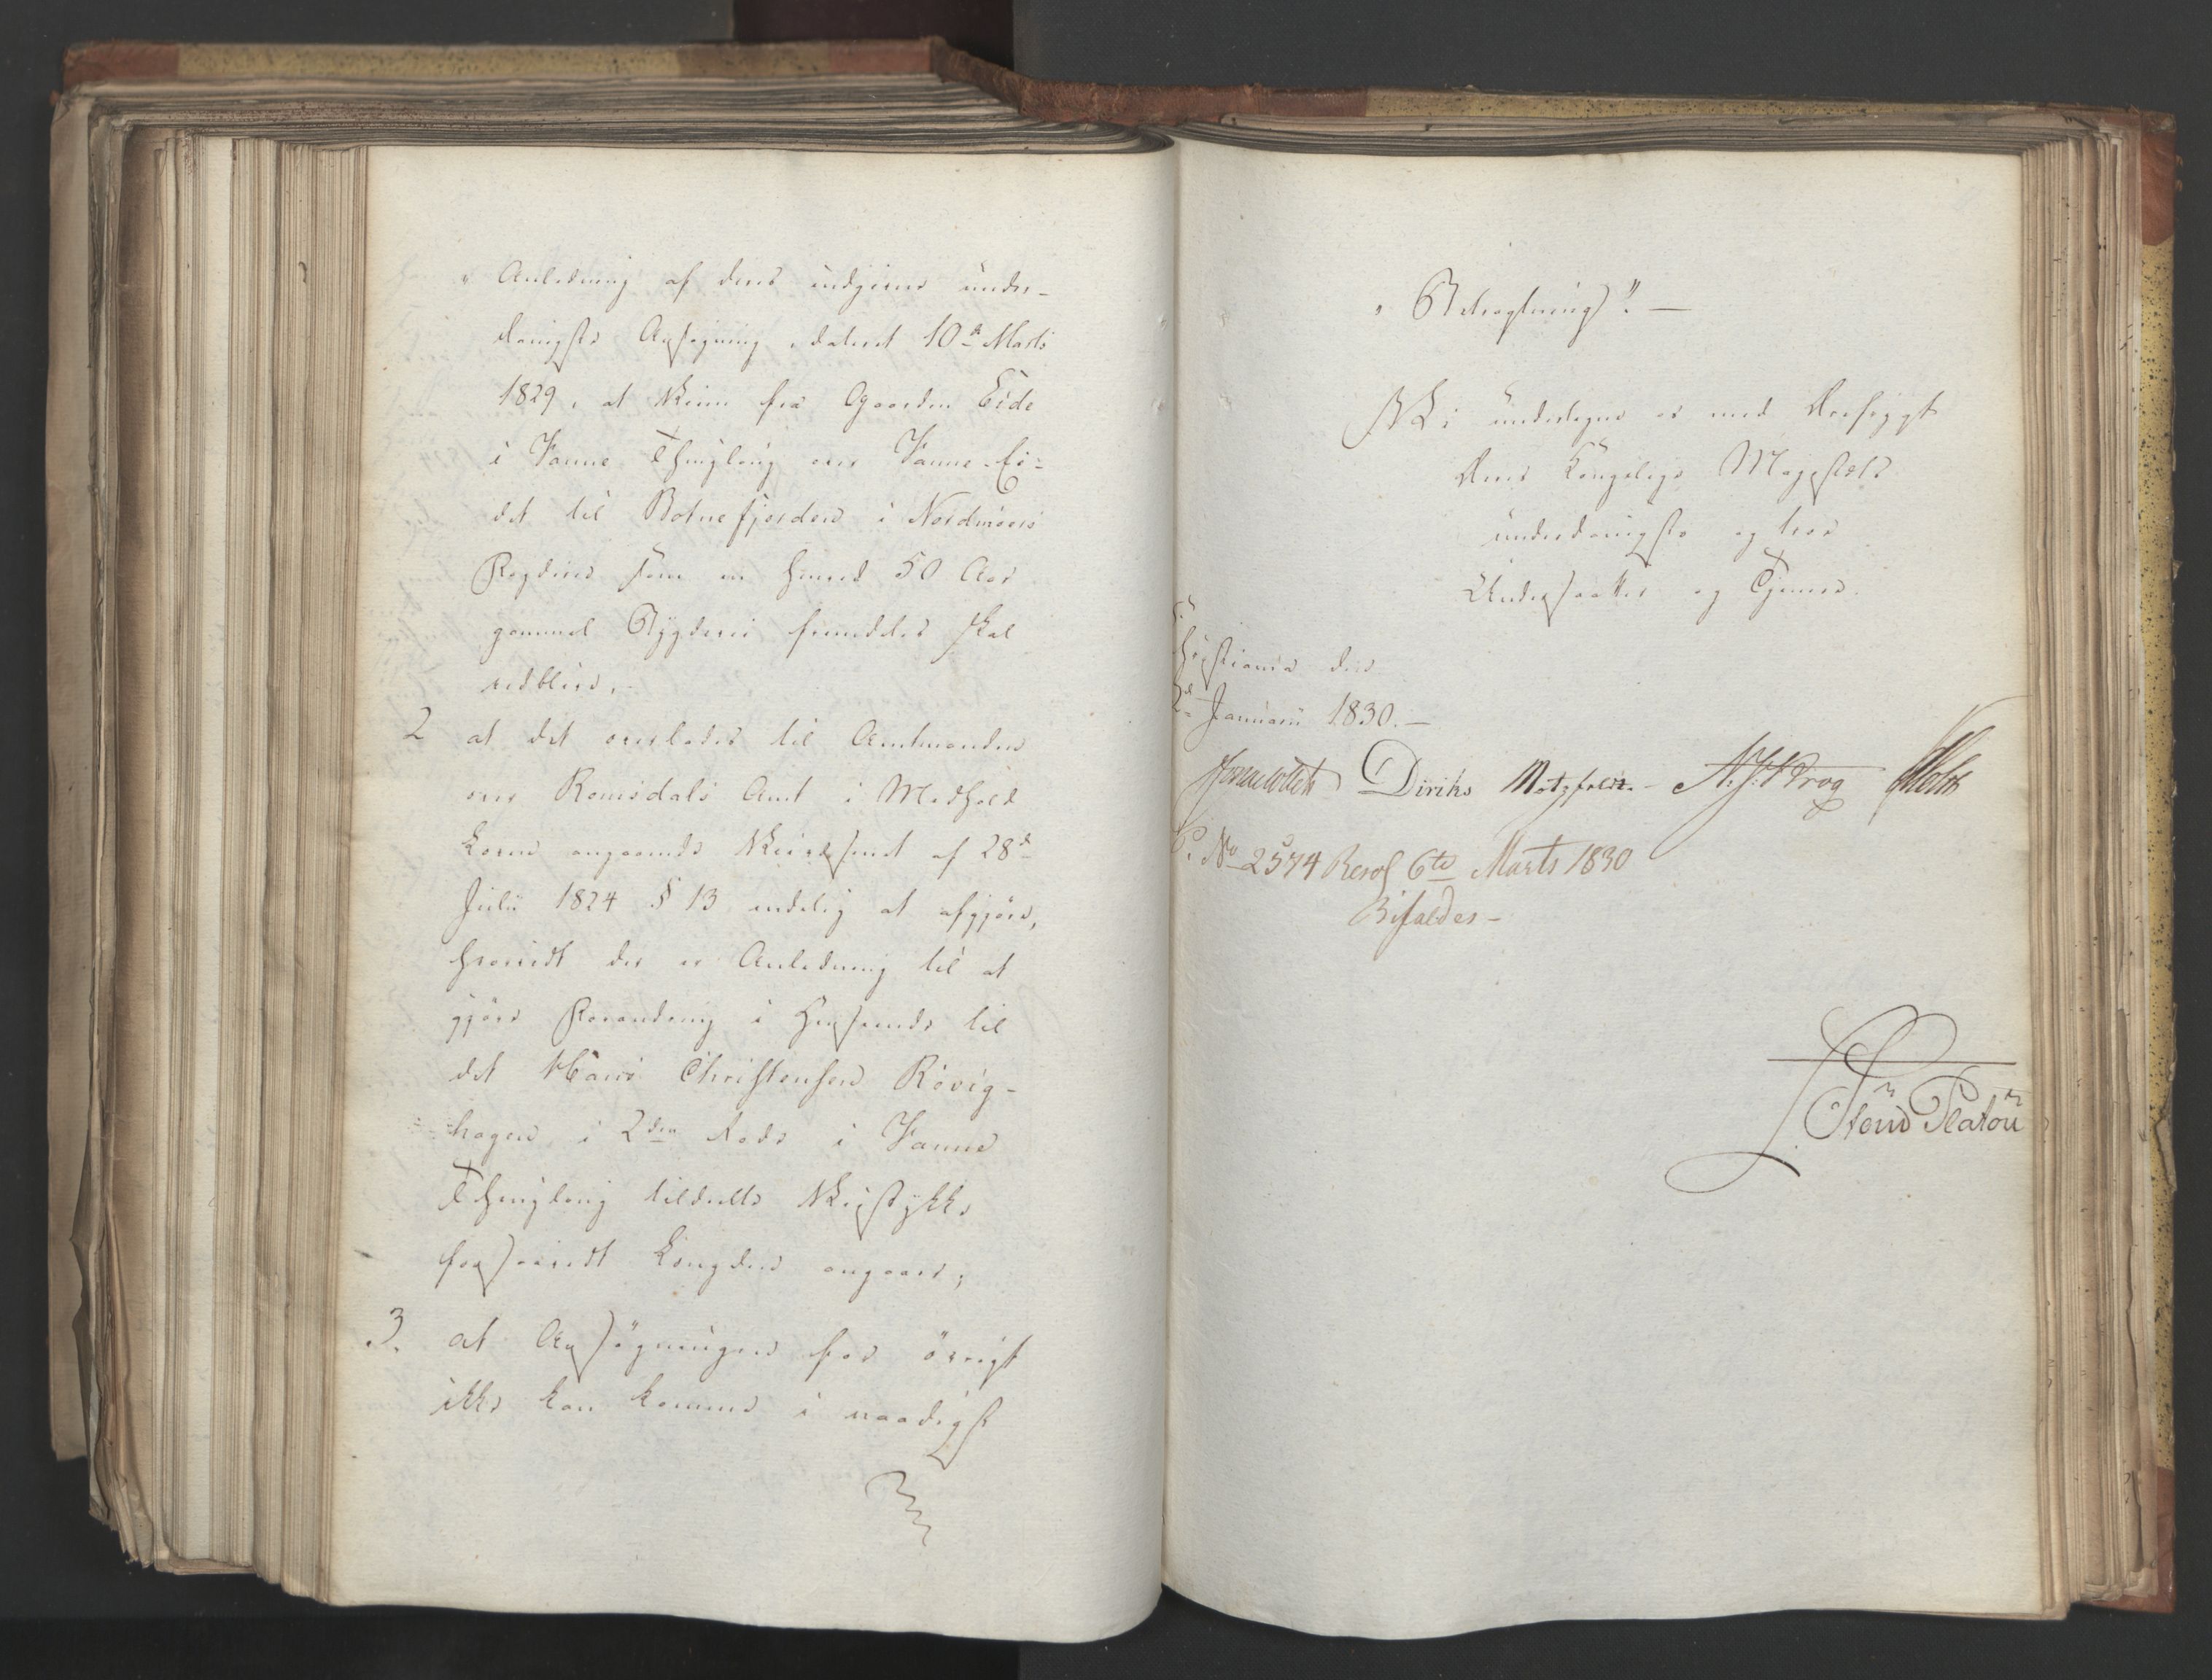 „ Anledning af deres indgivne under-
danigste Ansøgning, dateret 10de Marts
1829, at Veien fra Gaarden Eide
i Vaune Thinglaug over Vaune-Ei-
det til Botnefjorden i Nordmøers
Fogderie som en henved 50 Aar
gammel Bygdevei fremdeles skal
vedblive.-
2 at det overlades til Amtmanden
over Romsdals Amt i Medhold
Loven angaaende Veivæsenet af 28de
Julii 1824 § 13 endelig at afgjøre,
hvorvidt der er Anledning til at
gjøre Forandring i Henseende til
det Hans Christensen Røvig-
hagen i 2den Rode i Vaune
Thinglaug tildeelte Veistykke
forsaavidt Længden angaaer;
3. at Ansøgningen for øvrigt
ikke kan komme i naadigst
„ Betragtning". —
Vi undertegne os med Dyrefrygt
Deres Kongelige Majestæts
underdanigste og troe
Undersaatter og Tjenere.
Christiania den
2d Januarii 1830.—
Diriks Motzfeldt. N. J. Krog Holst
P. No 2574 Resol 6te Marts 1830
Bifaldes -
Steud Platou